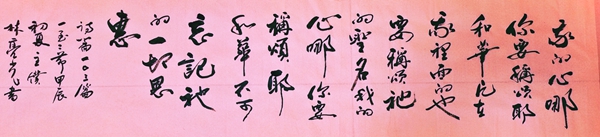 我的心哪
你要稱頌耶
和華凡在
我裡面的也
要稱頌祂
的聖名我的
心哪你要
稱頌耶
和華不可
忘記祂
的一切恩
惠
詩篇一〇三篇
一至二節甲辰
初夏主僕
林